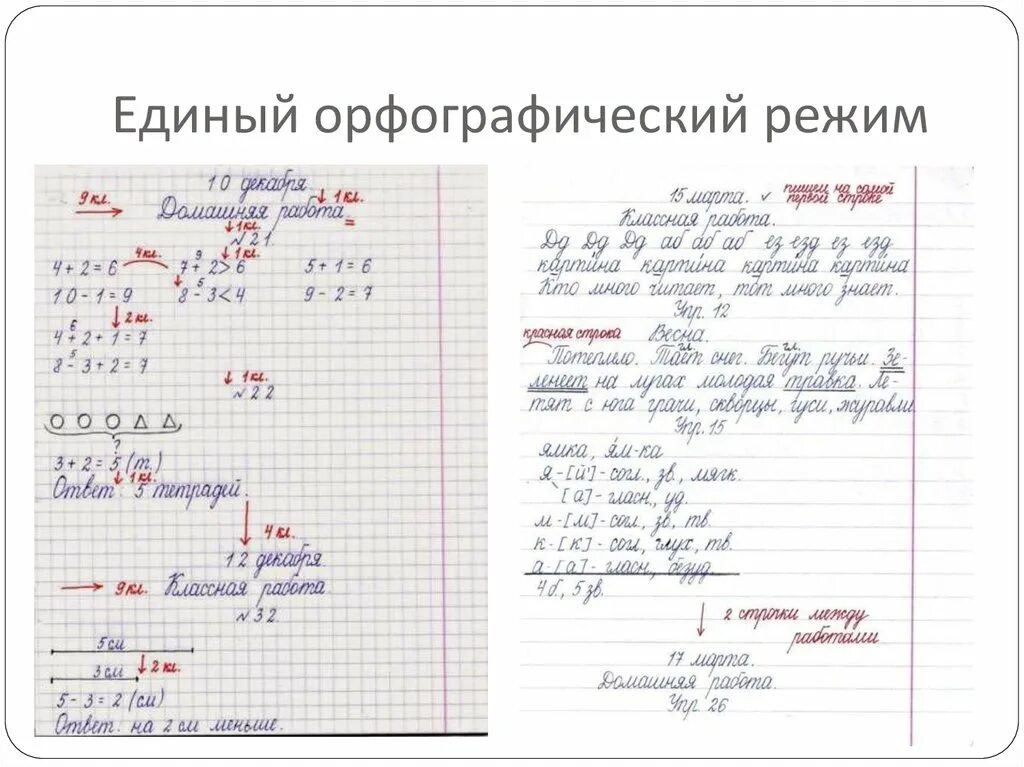 Единый орфографический режим
10 декабря.
9 кл. 1 кл.
Домашняя работа.
1 кл.
№ 21.
4 кл. 9 1 кл.
4 + 2 = 6 7 + 2 > 6 5 + 1 = 6
5
10 - 1 = 9 8 - 3 < 4 9 - 2 = 7
2 кл.
6
4 + 2 + 1 = 7
5
8 - 3 + 2 = 7
1 кл.
№ 22
?
3 + 2 = 5 (т.)
1 кл.
Ответ: 5 тетрадей.
4 кл.
12 декабря.
9 кл. Классная работа
№ 32.
5 см
3 см 2 кл.
5 - 3 = 2 (см)
Ответ: на 2 см меньше.
15 марта. пишем на самой
первой строке
Классная работа.
Дд Дд Дд аб аб аб ез езд ез езд
картина картина картина картина
Кто много читает, тот много знает.
Упр. 12
красная строка Весна.
гл. гл.
Потеплело. Тает снег. Бегут ручьи. Зе-
ленеет на лугах молодая травка. Ле-
тят с юга грачи, скворцы, гуси, журавли.
Упр. 15
ямка, ям-ка
я - [й'] - согл., зв., мягк.
[а] - гласн., уд.
м - [м] - согл., зв., тв.
к - [к] - согл., глух., тв.
а - [а] - гласн., безуд.
4 б., 5 зв.
2 строчки между
работами
17 марта.
Домашняя работа.
Упр. 26